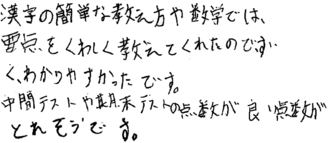 漢字の簡単な教え方や数学では、
要点をくわしく教えてくれたのですご
く、わかりやすかったです。
中間テストや期末テストの点数が良い点数が
とれそうです。